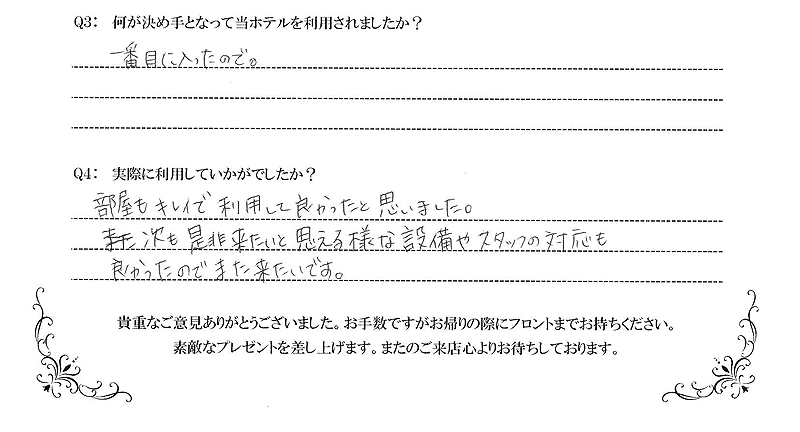 Q3: 何が決め手となって当ホテルを利用されましたか?
一番目に入ったので。
Q4: 実際に利用していかがでしたか?
部屋もキレイで利用して良かったと思いました。
次も是非来たいと思える様な設備やスタッフの対応も
良かったのでまた来たいです。
貴重なご意見ありがとうございました。お手数ですがお帰りの際にフロントまでお持ちください。
素敵なプレゼントを差し上げます。またのご来店心よりお待ちしております。